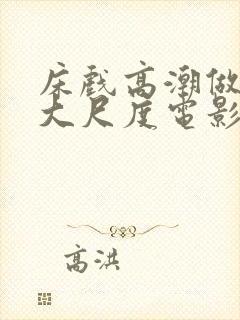 床戲高潮做
大尺度電影
高洪